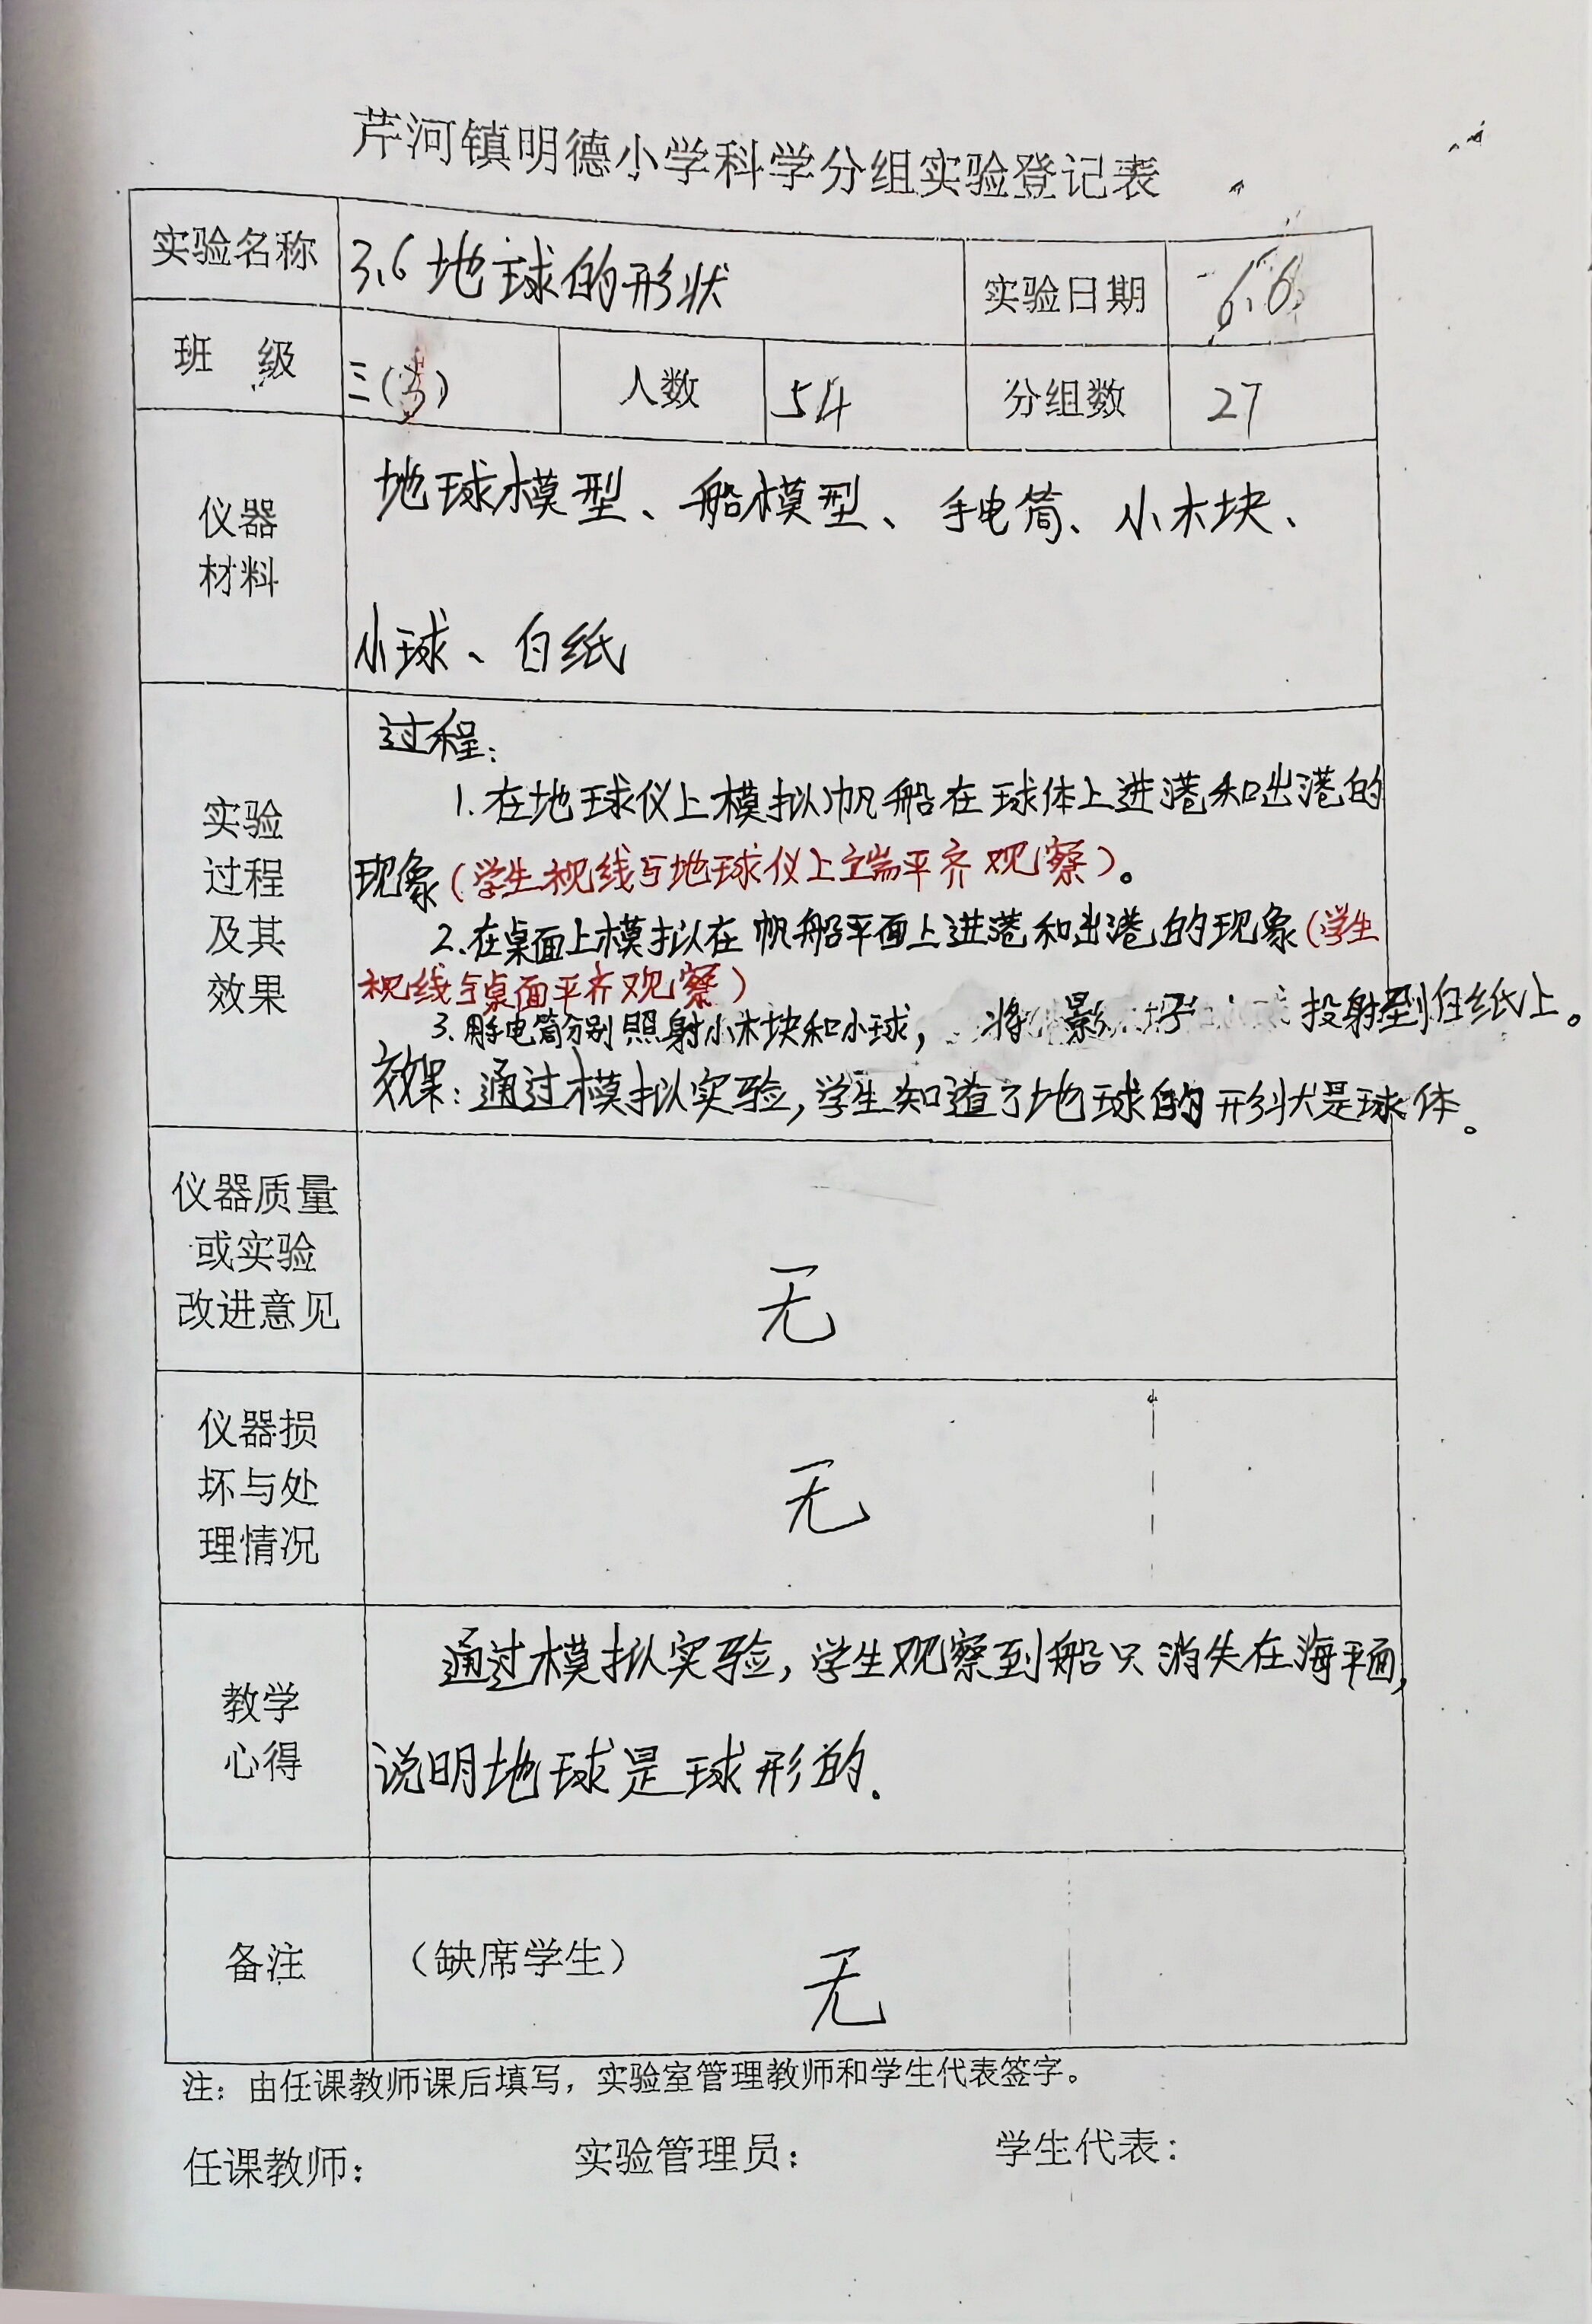 芹河镇明德小学科学分组实验登记表
实验名称 3.6 地球的形状 实验日期 6.6
班 级 三(3) 人数 54 分组数 27
仪器
材料
地球模型、船模型、手电筒、小木块、
小球、白纸
实验
过程
及其
效果
过程:
1.在地球仪上模拟帆船在球体上进港和出港的
现象(学生视线与地球仪上端平齐观察)。
2.在桌面上模拟在帆船平面上进港和出港的现象(学生
视线与桌面平齐观察)
3.用手电筒分别照射小木块和小球, 将 影子 投射到白纸上。
效果:通过模拟实验,学生知道了地球的形状是球体。
仪器质量
或实验
改进意见
无
仪器损
坏与处
理情况
无
教学
心得
通过模拟实验,学生观察到船只消失在海平面,
说明地球是球形的.
备注 (缺席学生) 无
注:由任课教师课后填写,实验室管理教师和学生代表签字。
任课教师: 实验管理员: 学生代表: